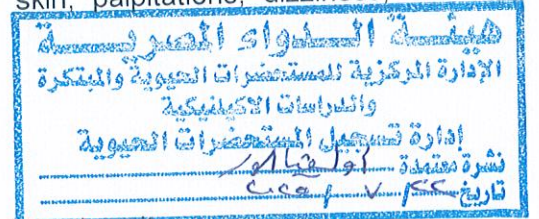 skin, palpitations,
هيئة الدواء المصرية
الإدارة المركزية للمستحضرات الحيوية والمبتكرة
والدراسات الاكلينيكية
إدارة تسجيل المستحضرات الحيوية
نشرة معتمدة
تاريخ